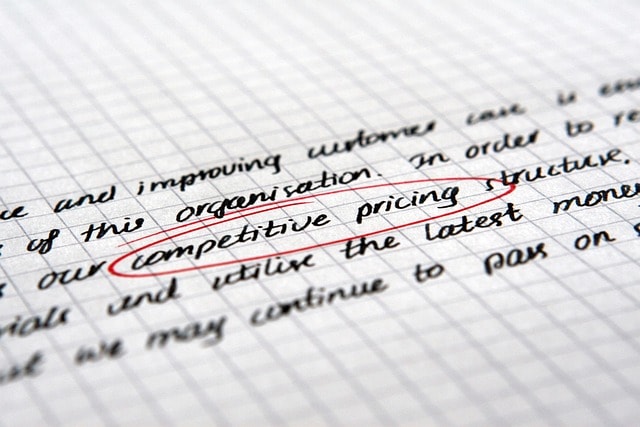 ce and improving customer care is
of this organisation. In order to re
our competitive pricing structure.
rials and utilise the latest mone
we may continue to pass on